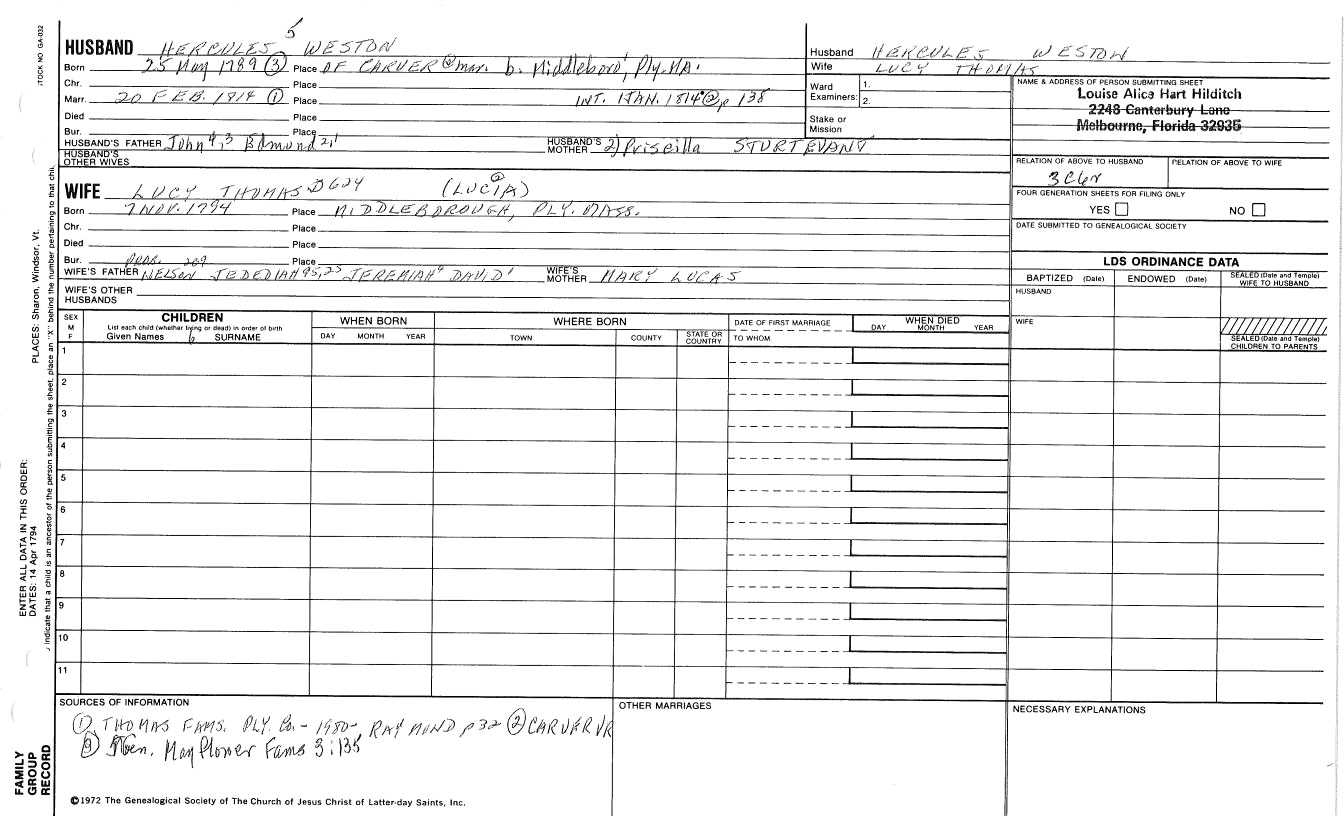 STOCK NO GA-032
5
HUSBAND HERCULES WESTON
Born 25 May 1789 (3) Place OF CARVER @ mar. b. Middleboro', Ply. MA.
Chr. Place
Marr. 20 FEB. 1814 (1) Place INT. 1 JAN. 1814 (2) p 138
Died Place
Bur. Place
HUSBAND'S FATHER John 4,3 Edmund 2,1 HUSBAND'S MOTHER 2) Priscilla STURTEVANT
HUSBAND'S OTHER WIVES
Husband HERCULES WESTON
Wife LUCY THOMAS
Ward Examiners: 1.
2.
Stake or Mission
NAME & ADDRESS OF PERSON SUBMITTING SHEET
Louise Alica Hart Hilditch
2248 Canterbury Lane
Melbourne, Florida 32935
RELATION OF ABOVE TO HUSBAND RELATION OF ABOVE TO WIFE
3C6r
FOUR GENERATION SHEETS FOR FILING ONLY
YES NO
DATE SUBMITTED TO GENEALOGICAL SOCIETY
WIFE LUCY THOMAS D624 (LUCIA) (2)
Born 7 NOV. 1794 Place MIDDLEBOROUGH, PLY. MASS.
Chr. Place
Died Place
Bur. Place
WIFE'S FATHER NELSON JEDEDIAH JEREMIAH DAVID WIFE'S MOTHER MARY LUCAS
WIFE'S OTHER HUSBANDS
LDS ORDINANCE DATA
BAPTIZED (Date) ENDOWED (Date) SEALED (Date and Temple) WIFE TO HUSBAND
HUSBAND
WIFE
SEALED (Date and Temple) CHILDREN TO PARENTS
SEX M F
CHILDREN
List each child (whether living or dead) in order of birth
Given Names 6 SURNAME
WHEN BORN
DAY MONTH YEAR
WHERE BORN
TOWN COUNTY STATE OR COUNTRY
DATE OF FIRST MARRIAGE
TO WHOM
WHEN DIED
DAY MONTH YEAR
1
2
3
4
5
6
7
8
9
10
11
SOURCES OF INFORMATION
(1) THOMAS FAMS. PLY. Co. - 1980 - RAYMOND p 32 (2) CARVER VR
(3) Gen. Mayflower Fams 3:135
OTHER MARRIAGES
NECESSARY EXPLANATIONS
©1972 The Genealogical Society of The Church of Jesus Christ of Latter-day Saints, Inc.
FAMILY GROUP RECORD
ENTER ALL DATA IN THIS ORDER:
DATES: 14 Apr 1794
PLACES: Sharon, Windsor, Vt.
indicate that a child is an ancestor of the person submitting the sheet, place an "X" behind the number pertaining to that chil